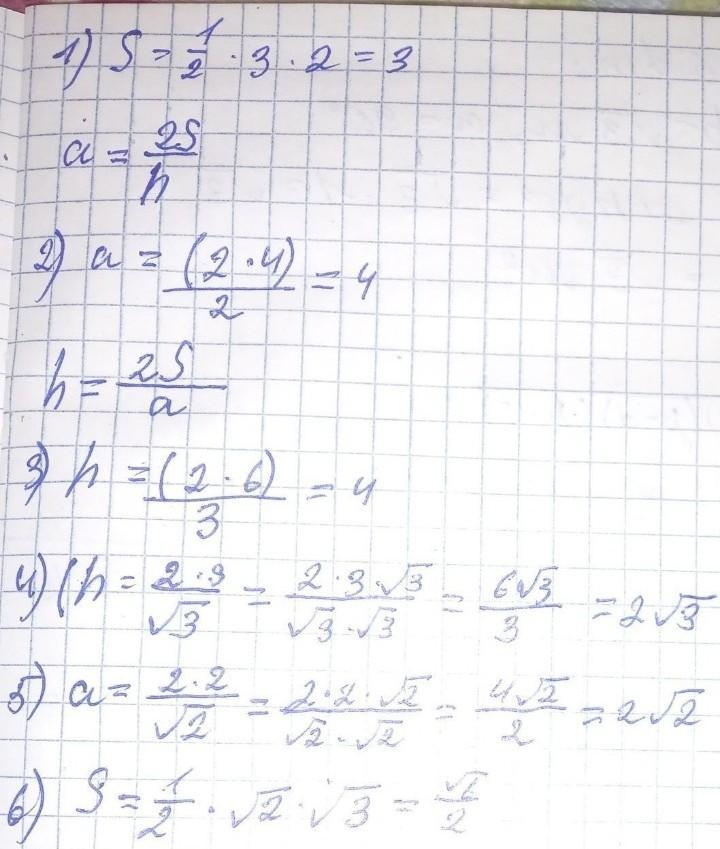 1) S = 1/2 · 3 · 2 = 3
a = 2S/h
2) a = (2 · 4)/2 = 4
h = 2S/a
3) h = (2 · 6)/3 = 4
4) (h = 2·3/√3 = 2·3·√3/√3·√3 = 6√3/3 = 2√3
5) a = 2·2/√2 = 2·2·√2/√2·√2 = 4√2/2 = 2√2
6) S = 1/2 · √2 · √3 = √6/2